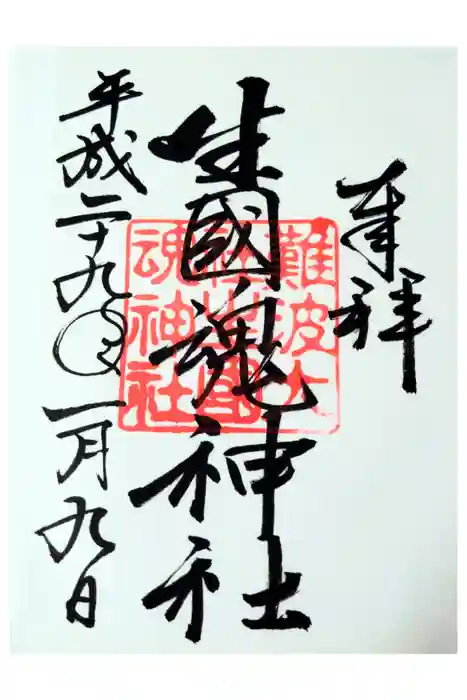 奉拝
生國魂神社
難波大
社生國
魂神社
平成二十九年一月九日